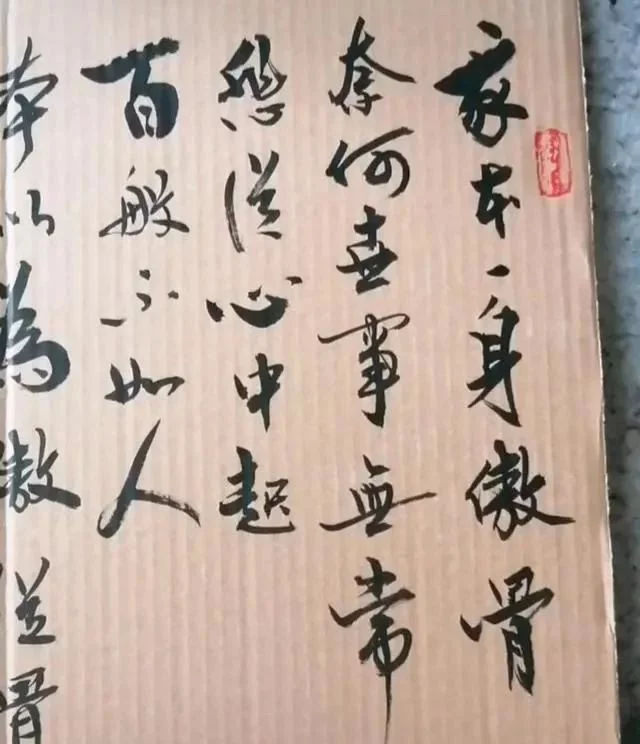 本一身傲骨
奈何世事無常
從心中起
百般不如人
本以為傲從骨